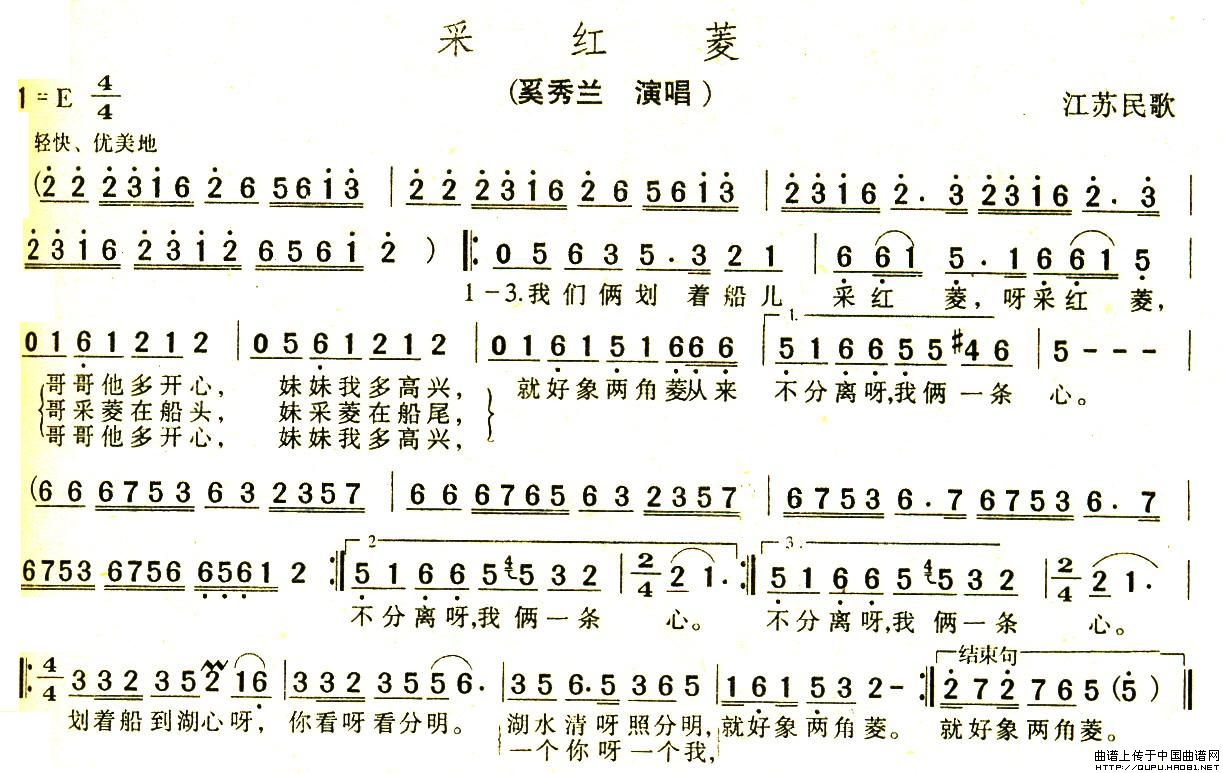 采 红 菱
(奚秀兰 演唱)
1=E 4/4
江苏民歌
轻快、优美地
(2 2 2316 26 5613 | 2 2 2316 26 5613 | 2316 2. 3 2316 2. 3 |
2316 2312 6561 2 ) ‖: 0 5 6 3 5. 3 2 1 | 6 61 5. 1 6 61 5
1-3.我们俩划着船儿 采红 菱,呀采红 菱,
0 1 6 1 2 1 2 | 0 5 6 1 2 1 2 | 0 1 6 1 5 1 66 6 | 1. 5 1 6 6 5 5 #4 6 | 5 - - -
哥哥他多开心, 妹妹我多高兴, 就好象两角菱从来 不分离呀,我俩一条 心。
哥采菱在船头, 妹采菱在船尾,
哥哥他多开心, 妹妹我多高兴,
(6 6 6753 6 3 2357 | 6 6 6765 6 3 2357 | 6753 6. 7 6753 6. 7 |
6753 6756 6561 2 :‖ 2 5 1 6 6 5 4 5 3 2 | 2/4 2 1. :‖ 3. 5 1 6 6 5 4 5 3 2 | 2/4 2 1. |
不分离呀,我俩一条 心。 不分离呀,我俩一条 心。
‖: 4/4 3 3 2 3 5 2 1 6 | 3 3 2 3 5 5 6. | 3 5 6. 5 3 6 5 | 1 6 1 5 3 2 - :‖ 结束句 2 7 2 7 6 5 (5) ‖
划着船到湖心呀, 你看呀看分明。 湖水清呀照分明, 就好象两角菱。 就好象两角菱。
一个你呀一个我,
曲谱上传于中国曲谱网
HTTP://QUPU.HAO81.NET